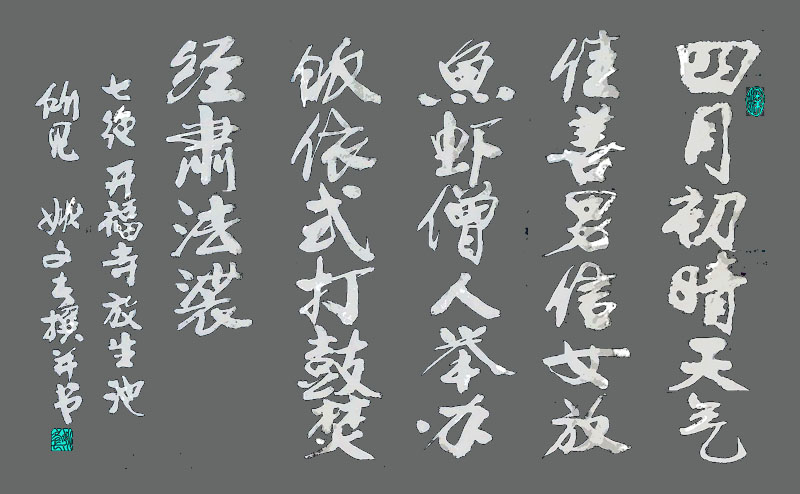 四月初晴天气
佳善男信女放
鱼虾僧人举办
皈依式打鼓焚
经肃法裟
七绝开福寺放生池
所见 姚文吉撰并书